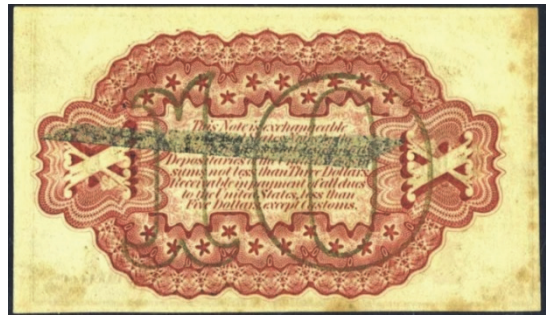 10
This Note is exchangeable
Depositaries of the United States in
sums not less than Three Dollars.
Receivable in payment of all dues
to the United States, less than
Five Dollars, except Customs.
X X